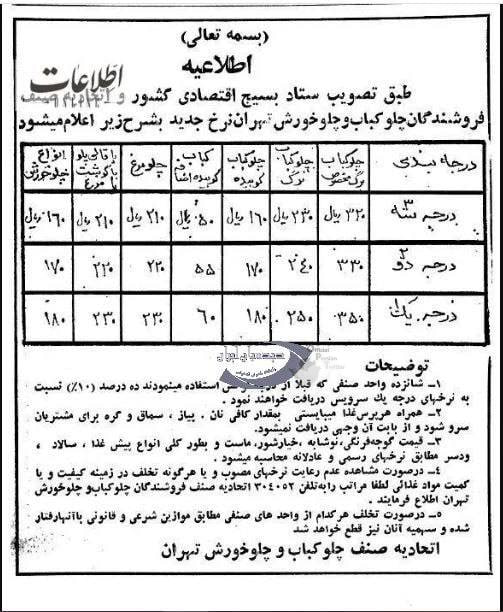 (بسمه تعالی)
اطلاعیه
اطلاعات
طبق تصویب ستاد بسیج اقتصادی کشور و اتحادیه صنف
فروشندگان چلوکباب و چلوخورش تهران نرخ جدید بشرح زیر اعلام میشود
درجه بندی چلوکباب برگ مخصوص چلوکباب برگ چلوکباب کوبیده کباب کوبیده اضافه چلومرغ باقالی پلو با گوشت یا مرغ انواع چلوخورش
درجه ۳ سه ۳۲۰ ریال ۲۳۰ ریال ۱۶۰ ریال ۵۰ ریال ۲۱۰ ریال ۲۱۰ ریال ۱۶۰ ریال
درجه ۲ دو ۳۳۰ ۲۴۰ ۱۷۰ ۵۵ ۲۲۰ ۲۲۰ ۱۷۰
درجه یک ۳۵۰ ۲۵۰ ۱۸۰ ۶۰ ۲۳۰ ۲۳۰ ۱۸۰
توضیحات
۱ــ شانزده واحد صنفی که قبلا از استفاده مینمودند ده درصد (۱۰٪) نسبت
به نرخهای درجه یک سرویس دریافت خواهند نمود .
۲ــ همراه هرپرس غذا میبایستی بمقدار کافی نان . پیاز ، سماق و کره برای مشتریان
سرو شود و از بابت آن وجهی دریافت نمیشود.
۳ــ قیمت گوجه‌فرنگی، نوشابه ،خیارشور، ماست و بطور کلی انواع پیش غذا ، سالاد ،
ودسر مطابق نرخهای رسمی و عادلانه محاسبه میشود .
۴ــ درصورت مشاهده عدم رعایت نرخهای مصوب و یا هرگونه تخلف در زمینه کیفیت و یا
کمیت مواد غذائی لطفا مراتب را به‌تلفن ۳۰۴۰۵۲ اتحادیه صنف فروشندگان چلوکباب و چلوخورش
تهران اطلاع فرمایند .
۵ــ درصورت تخلف هرکدام از واحد های صنفی مطابق موازین شرعی و قانونی باآنهارفتار
شده و سهمیه آنان نیز قطع خواهد شد
اتحادیه صنف چلوکباب و چلوخورش تهران